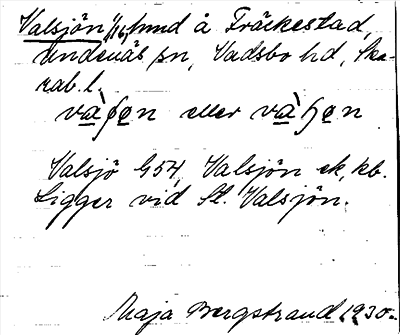 Valsjön, 1/16 hmd å Träckestad,
Undenäs sn, Vadsbo hd, Ska-
rab. l.
eller
Valsjö G54, Valsjön ek, kb.
Ligger vid St. Valsjön.
Maja Bergstrand 1930.